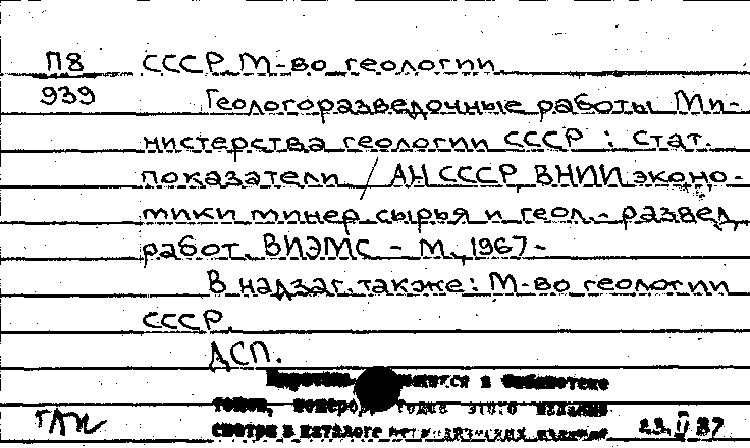 П8 СССР. М-во геологии
939 Геологоразведочные работы Ми-
нистерства геологии СССР : Стат.
показатели / АН СССР, ВНИИ эконо-
мики минер. сырья и геол.-развед.
работ. ВИЭМС - М., 1967-
В надзаг. также: М-во геологии
СССР.
ДСП.
в библиотеке
томов, номеров, годов этого издания
смотри в каталоге периодических изданий
23.II 87